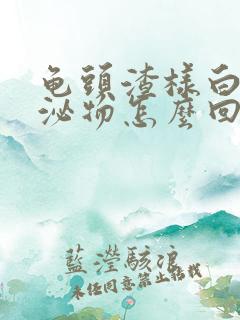 龟頭渣樣白
泌物怎麼回
藍瀅駭浪
未经同意禁止轉載